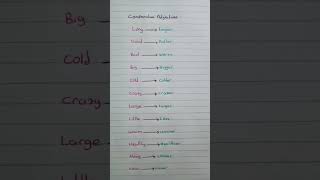 Comparative Adjectives
Long → Longer
Good → Better
Bad → Worse
Big → Bigger
Cold → Colder
Crazy → Crazier
Large → Larger
Little → Less
Warm → Warmer
Healthy → Healthier
Big
Cold
Crazy
Large